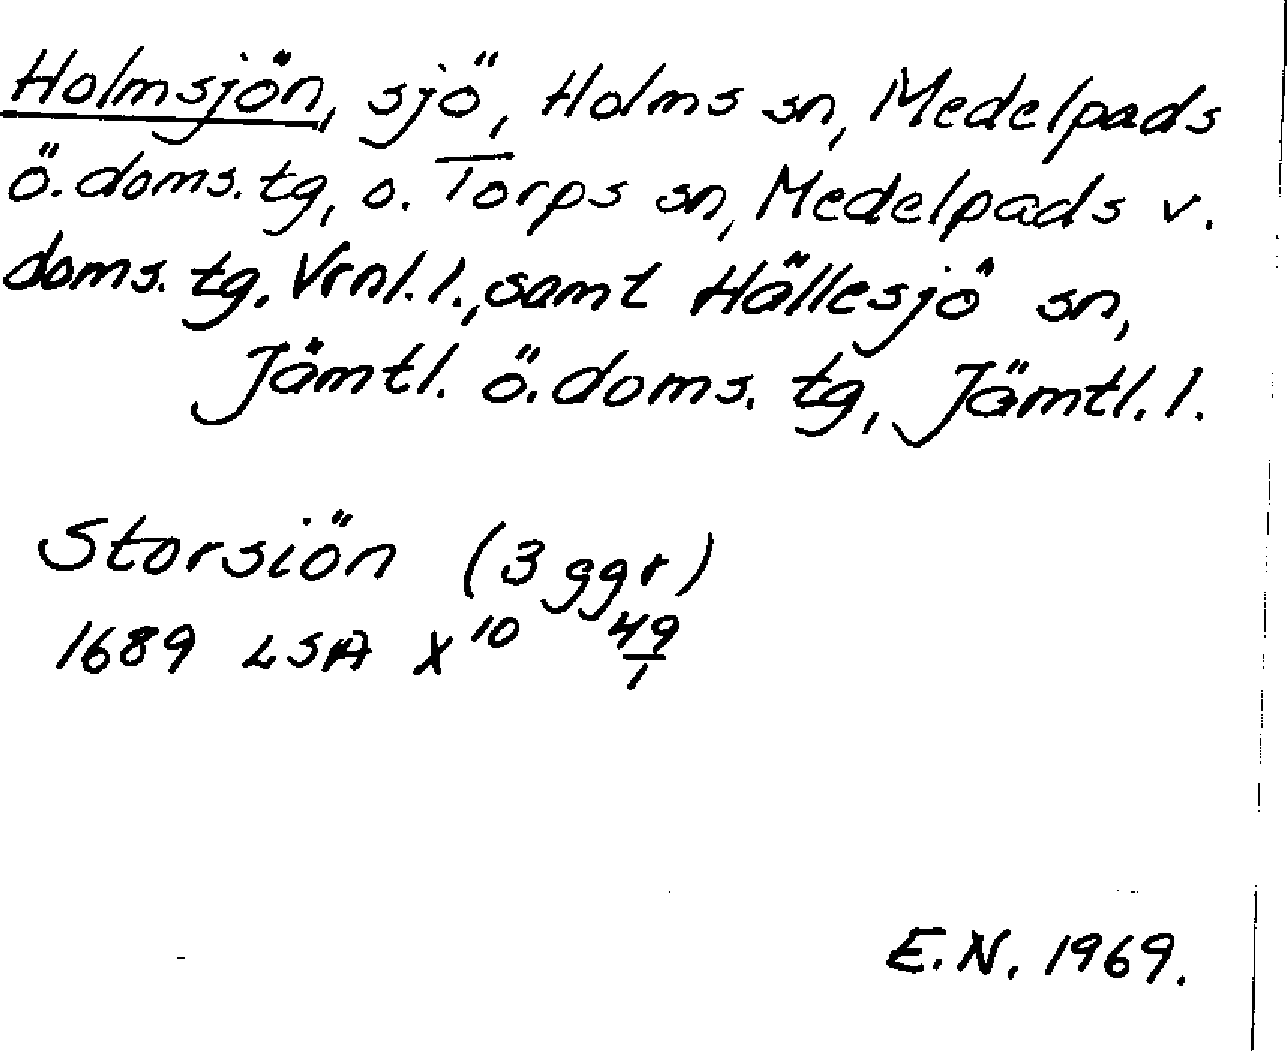 Holmsjön, sjö, Holms sn, Medelpads
ö. doms. tg, o. Torps sn, Medelpads v.
doms. tg. Vrnl. l., samt Hällesjö sn,
Jämtl. ö. doms. tg, Jämtl. l.
Storsiön (3 ggr)
1689 LSA X 10 49/1
E.N. 1969.